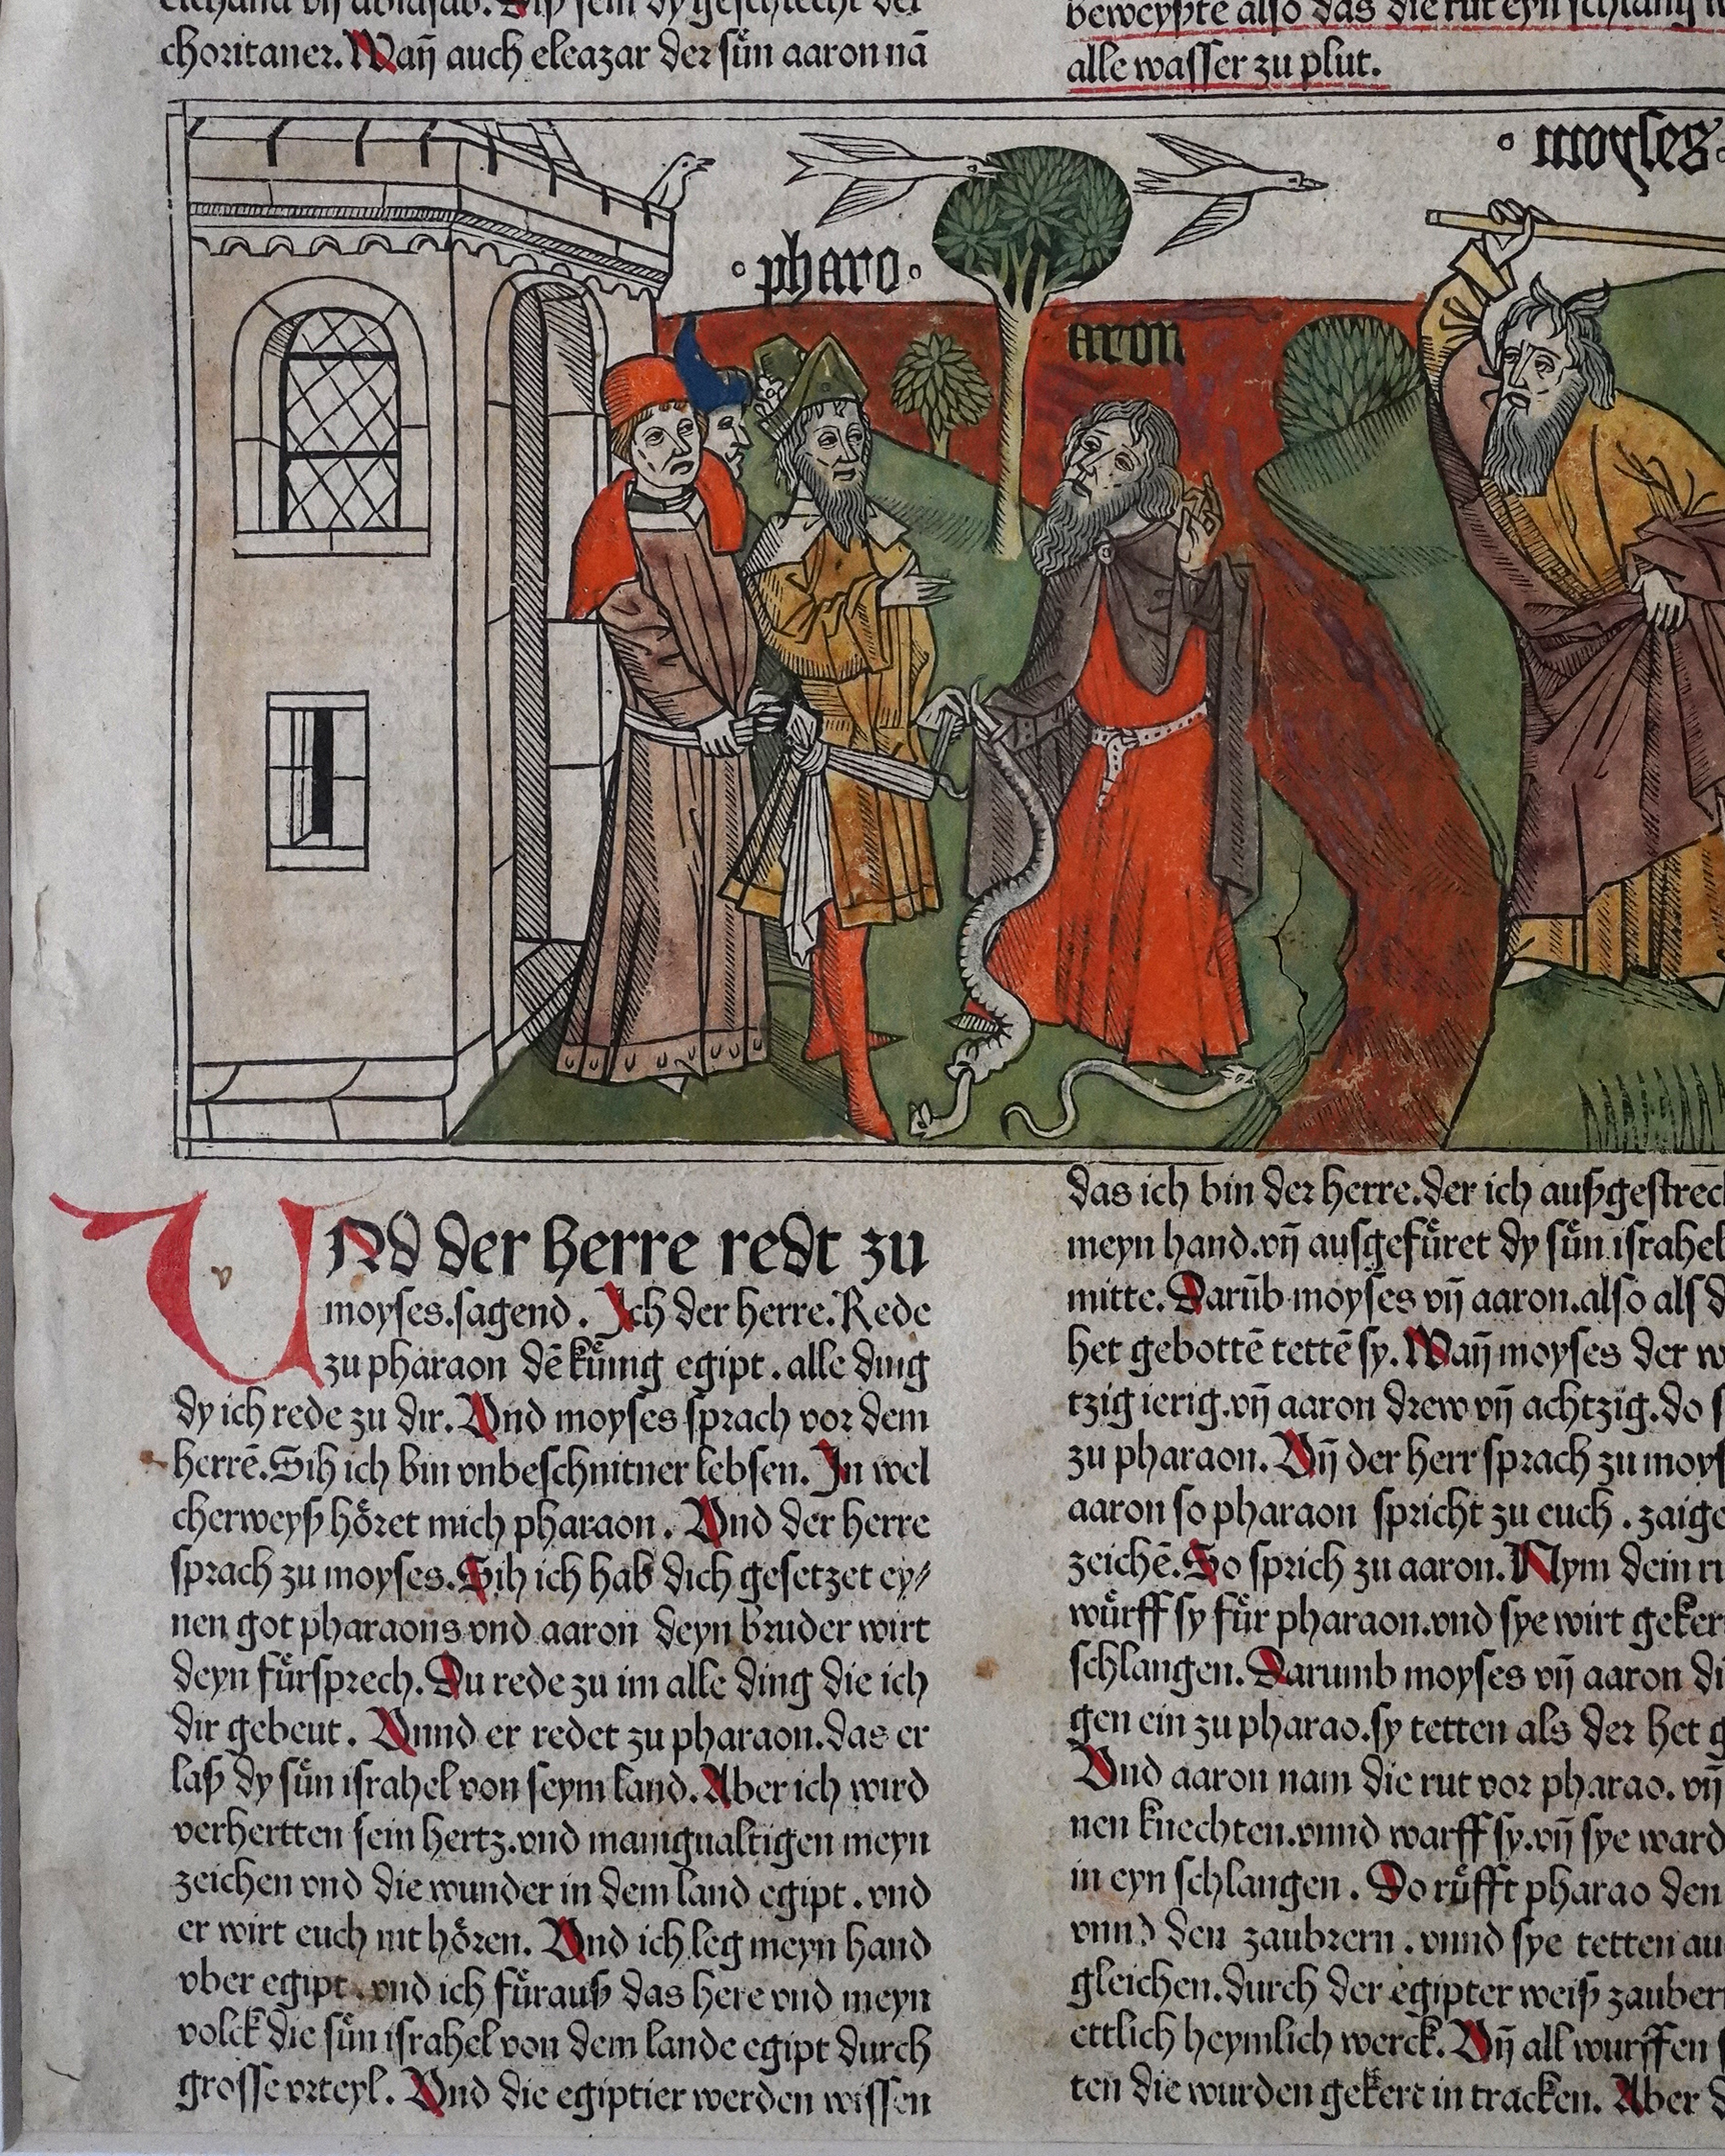 choritaner. Wañ auch eleazar der sůn aaron nã
beweyßte also das die rut eyn schlang
alle wasser zu plut.
moyses
pharo
aron
UNd der herre redt zu
v
moyses.sagend. Ich der herre. Rede
zu pharaon dẽ kůnig egipt. alle ding
dy ich rede zu dir. Und moyses sprach vor dem
herrẽ. Sih ich bin vnbeschnitner lebsen. In wel
cherweyß hôret mich pharaon. Und der herre
sprach zu moyses. Sih ich hab dich gesetzet ey⸗
nen got pharaons vnd aaron deyn bruder wirt
deyn fůrsprech. Du rede zu im alle ding die ich
dir gebeut. Unnd er redet zu pharaon.das er
laß dy sůn israhel von seym land. Aber ich wird
verhertten sein hertz.vnd manigualtigen meyn
zeichen vnd die wunder in dem land egipt. vnd
er wirt euch nit hôren. Und ich leg meyn hand
vber egipt. vnd ich fůrauß das here vnd meyn
volck die sůn israhel von dem lande egipt durch
grosse vrteyl. Und die egiptier werden wissen
das ich bin der herre.der ich außgestrec
meyn hand.vñ ausgefůret dy sůn israhel
mitte. Darũb moyses vñ aaron.also als
het gebottẽ tettẽ sy. Wañ moyses der
tzig ierig.vñ aaron drew vñ achtzig.do
zu pharaon. Uñ der herr sprach zu moys
aaron so pharaon spricht zu euch. zaige
zeichẽ. So sprich zu aaron. Nym dein
wůrff sy fůr pharaon.vnd sye wirt geker
schlangen. Darumb moyses vñ aaron
gen ein zu pharao.sy tetten als der het
Und aaron nam die rut vor pharao. vñ
nen knechten.vnnd warff sy.vñ sye ward
in eyn schlangen. Do růfft pharao den
vnnd den zaubrern. vnnd sye tetten
gleichen.durch der egipter weiß zauber
ettlich heymlich werck. Uñ all wurffen
ten die wurden gekert in tracken. Aber